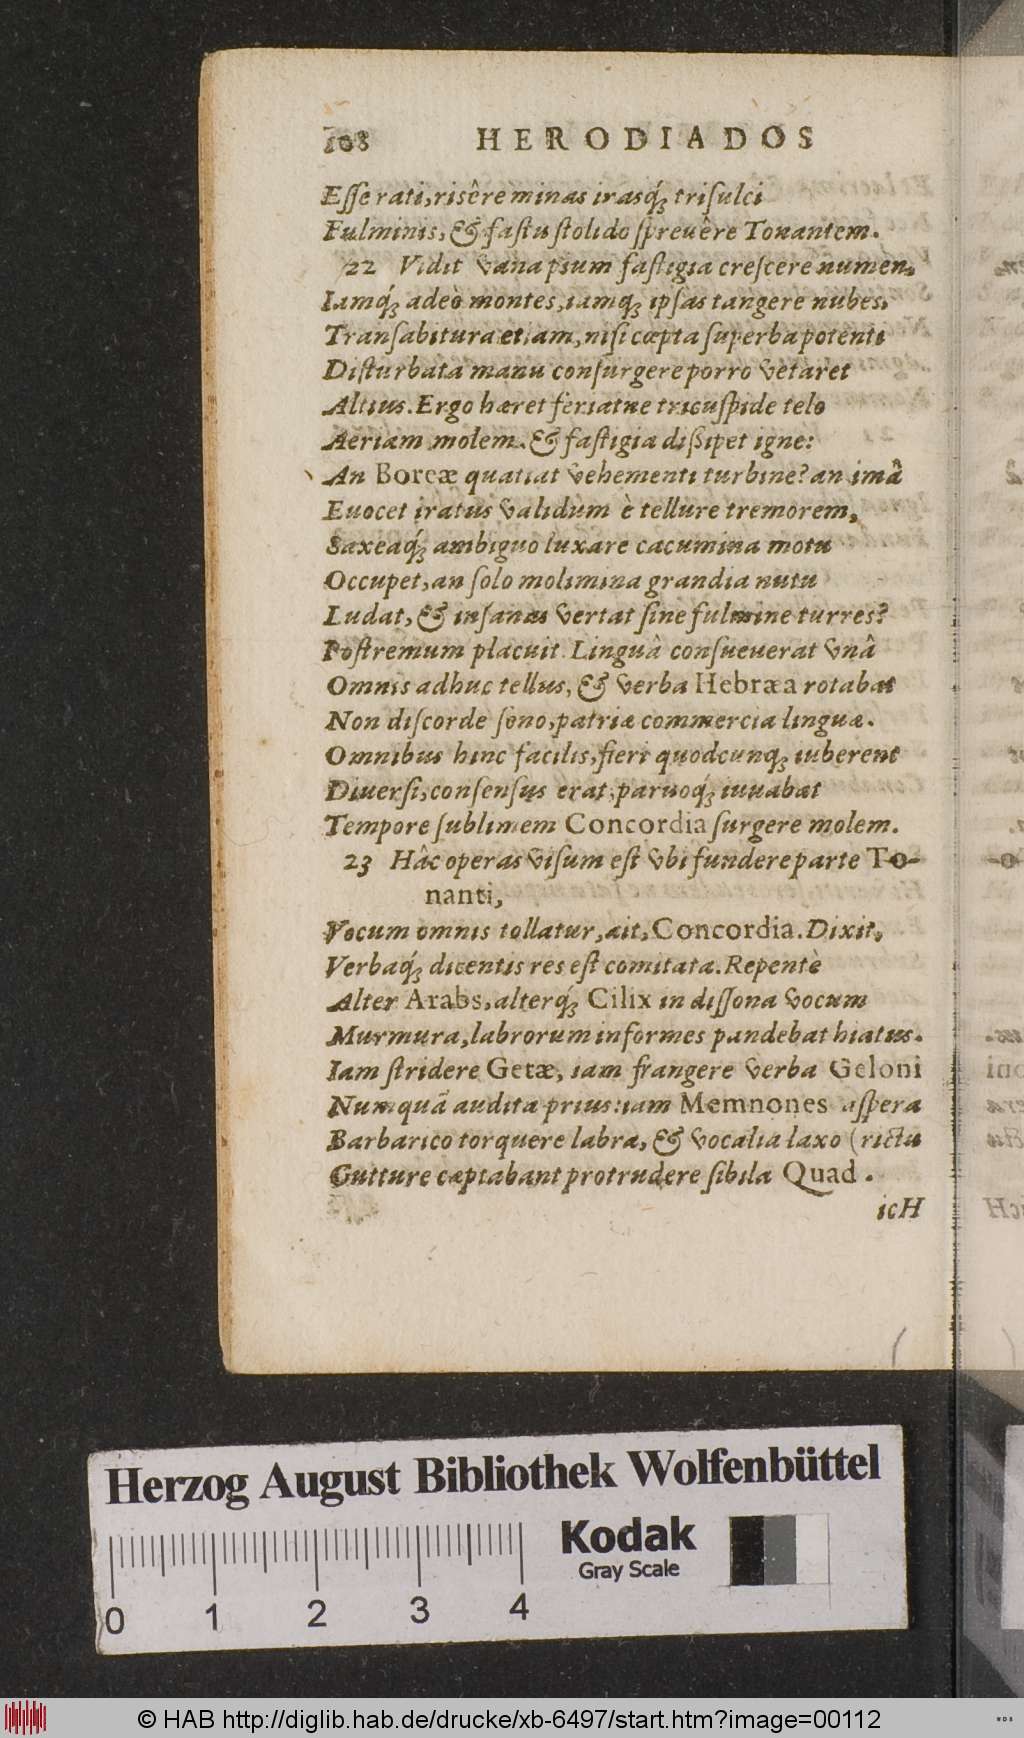 108 HERODIADOS
Eſſe rati, risêre minas irasq́; triſulci
Fulminis, & faſtu ſtolido ſprevêre Tonantem.
22 Vidit vana pium faſtigia creſcere numen,
Iamq́; adeò montes, iamq; ipſas tangere nubes,
Tranſabitura etiam, niſi cœpta ſuperba potenti
Diſturbata manu conſurgere porro vetaret
Altius. Ergo hæret feriatne tricuſpide telo
Aeriam molem, & faſtigia diſsipet igne:
An Boreæ quatiat vehementi turbine? an imâ
Euocet iratus validum è tellure tremorem,
Saxeaq́; ambiguo luxare cacumina motu
Occupet, an ſolo molimina grandia nutu
Ludat, & inſanas vertat ſine fulmine turres?
Poſtremum placuit. Linguâ conſueuerat vnâ
Omnis adhuc tellus, & verba Hebræa rotabat
Non diſcorde ſono, patriæ commercia linguæ.
Omnibus hinc facilis, fieri quodcunq; iuberent
Diuerſi, conſenſus erat, paruoq́; iuuabat
Tempore ſublimem Concordia ſurgere molem.
23 Hâc operas viſum eſt vbi fundere parte To-
nanti,
Vocum omnis tollatur, ait, Concordia. Dixit,
Verbaq́; dicentis res eſt comitata. Repentè
Alter Arabs, alterq́; Cilix in diſſona vocum
Murmura, labrorum informes pandebat hiatus.
Iam ſtridere Getæ, iam frangere verba Geloni
Numquā audita prius: iam Memnones aſpera
Barbarico torquere labra, & vocalia laxo (rictu
Gutture cæptabant protrudere ſibila Quad .
icH
Herzog August Bibliothek Wolfenbüttel
Kodak
Gray Scale
0 1 2 3 4
© HAB http://diglib.hab.de/drucke/xb-6497/start.htm?image=00112